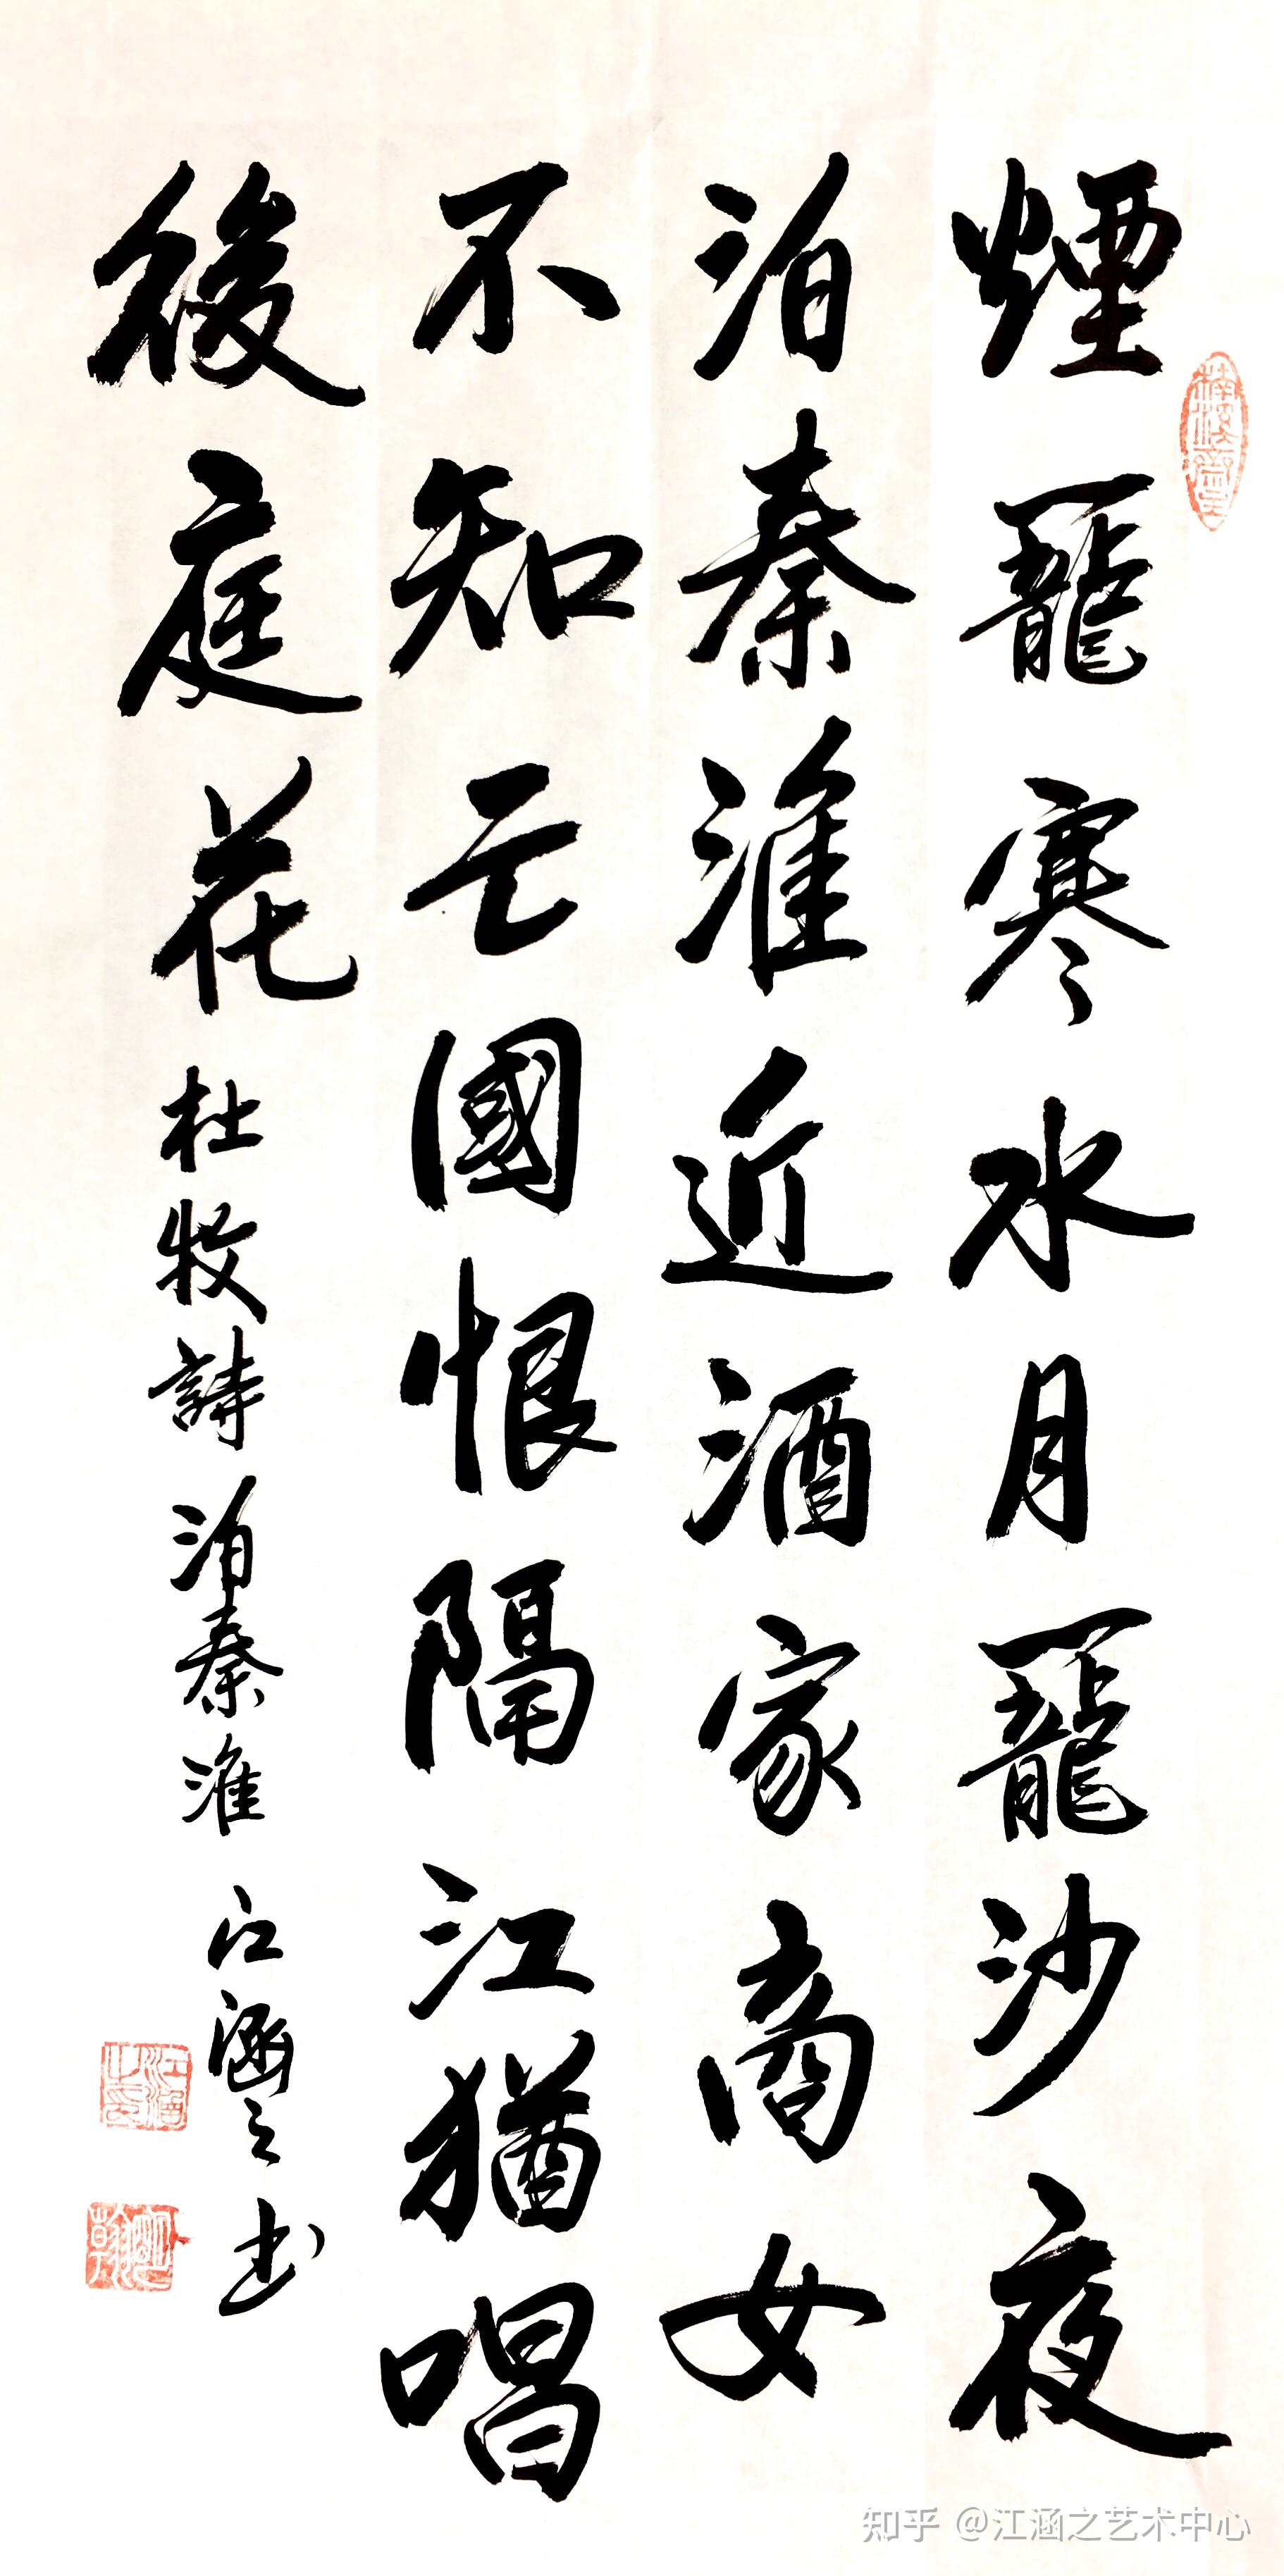 煙籠寒水月籠沙夜
泊秦淮近酒家商女
不知亡國恨隔江猶唱
後庭花 杜牧詩泊秦淮 江涵之书
江涵之印
知乎 @江涵之艺术中心